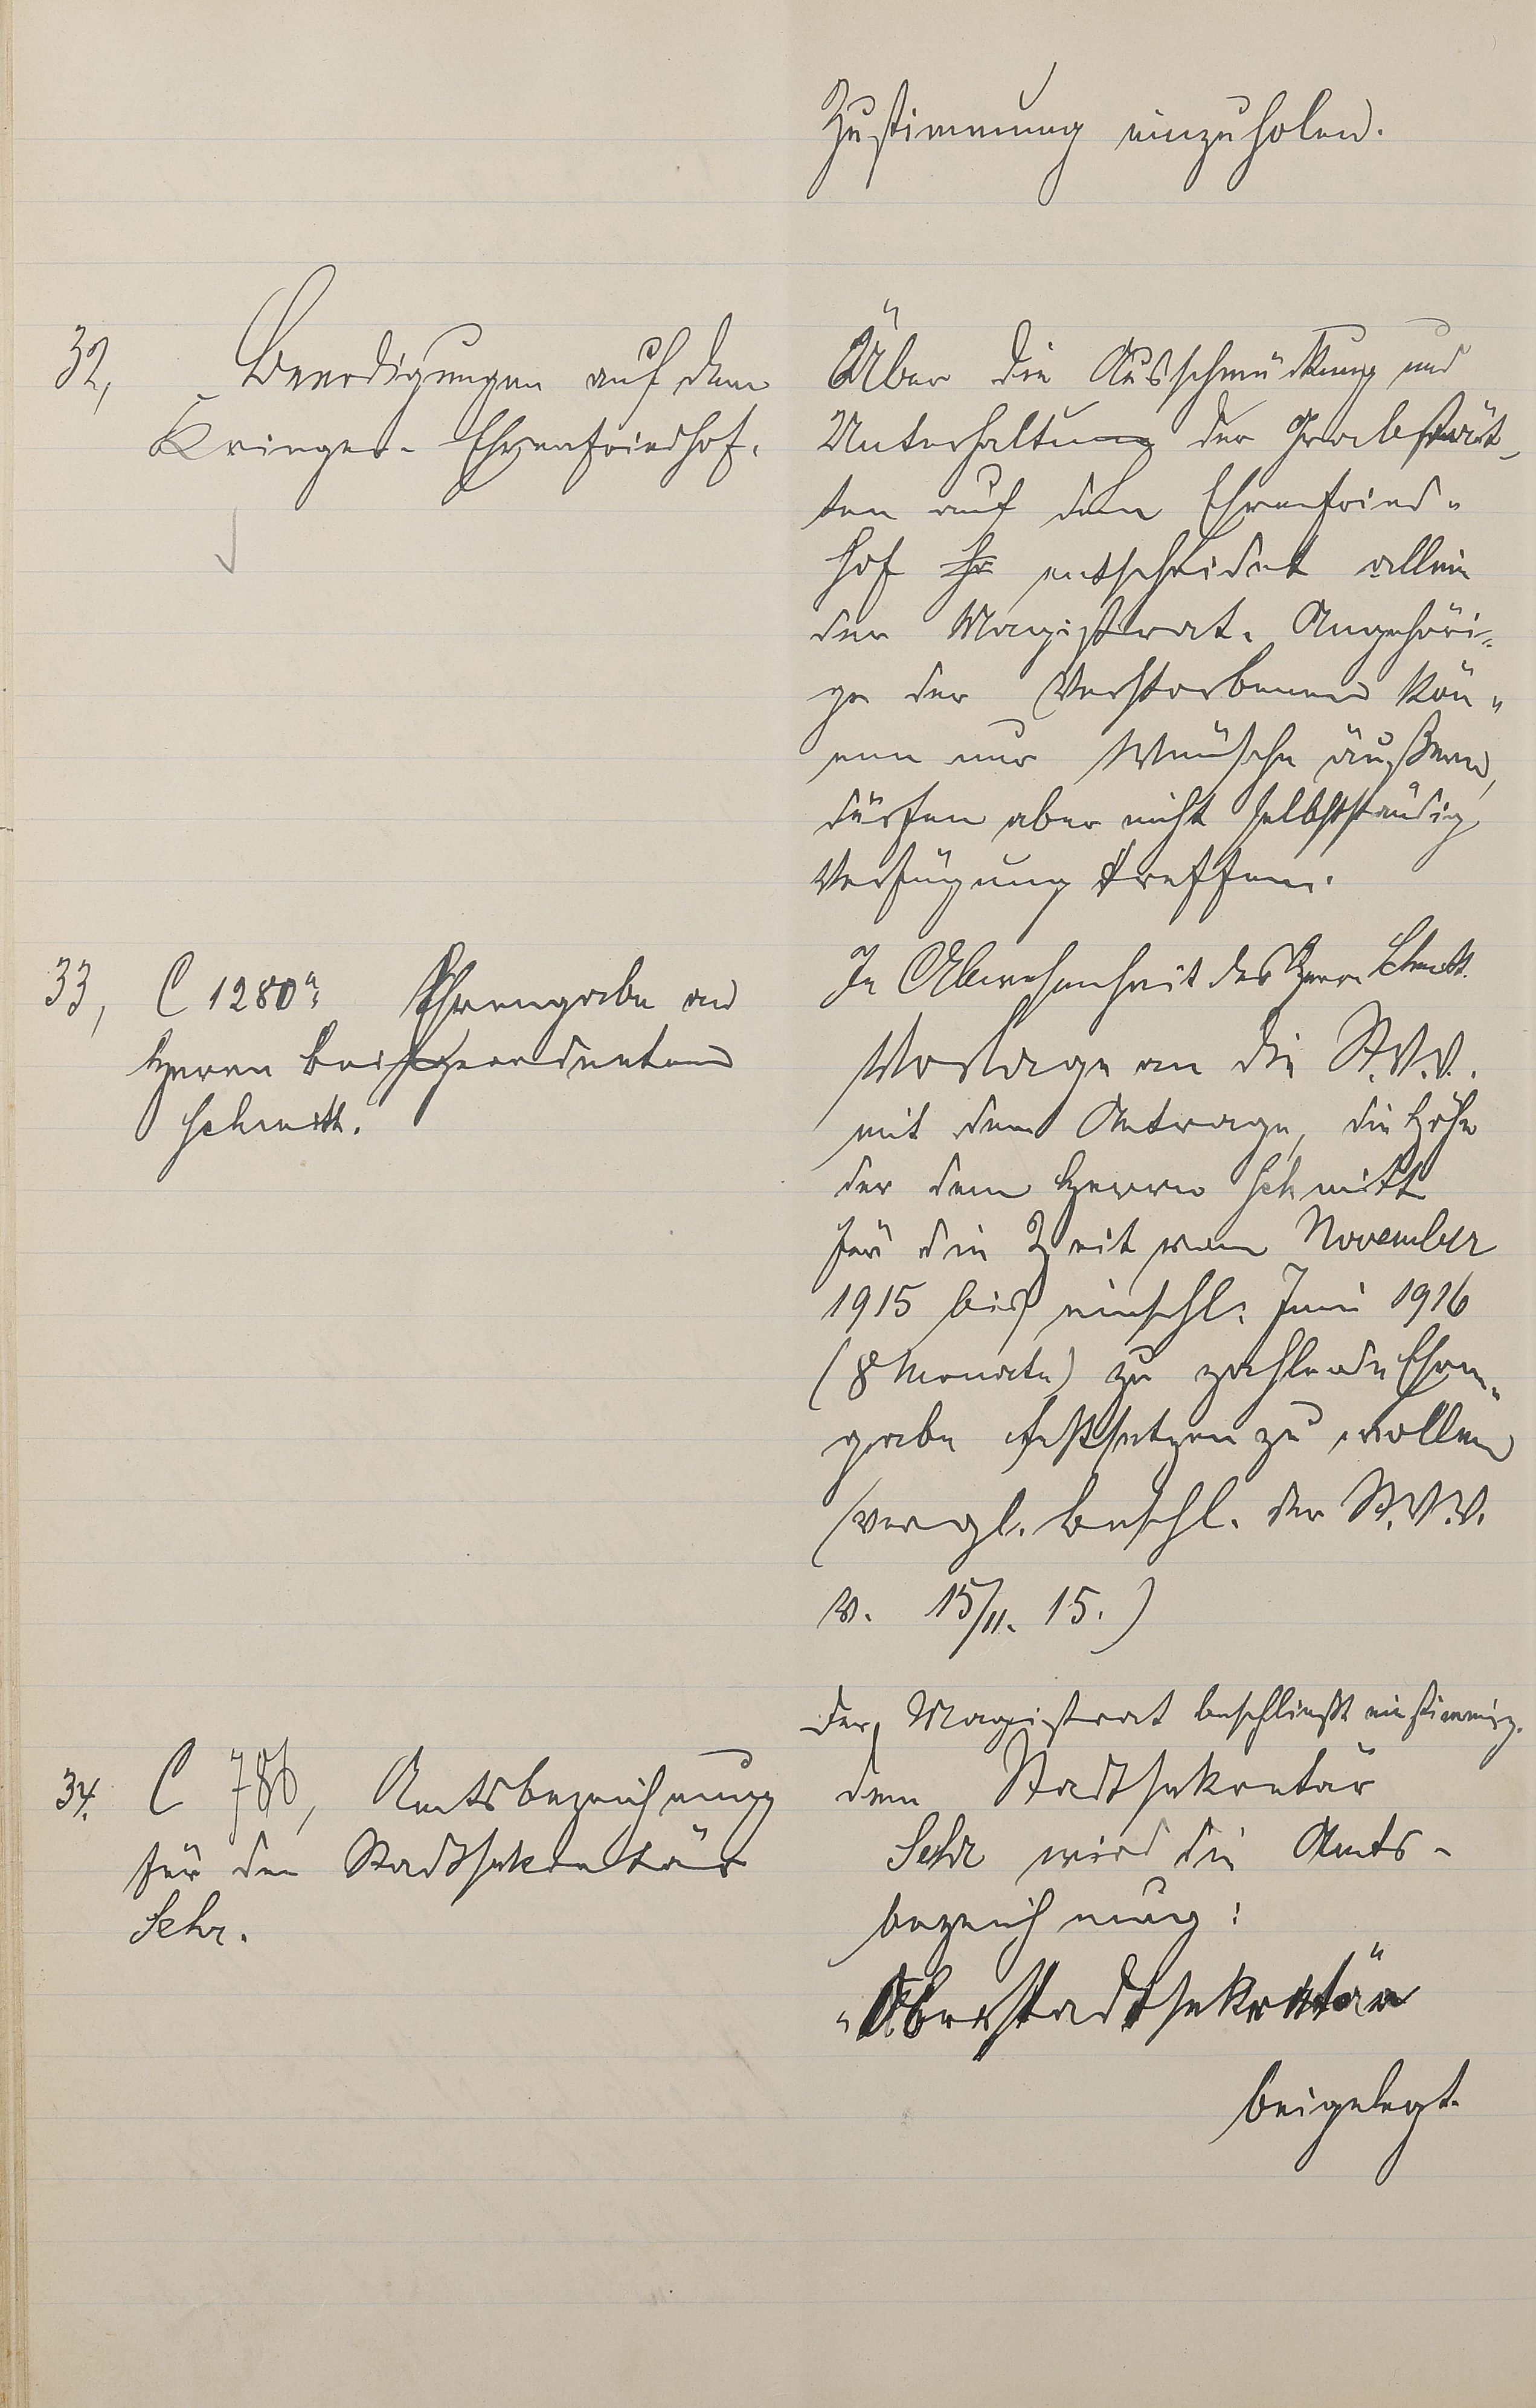 Zustimmung einzuholen.
32, Beerdigungen auf dem
Krieger-Ehrenfriedhof.
Über die Ausschmückung und
Unterhaltung der Grabstät-
ten auf dem Ehrenfried-
hof entscheidet allein
der Magistrat. Angehöri-
ge der Verstorbenen kön-
nen nur Wünsche äußern,
dürfen aber nicht selbstständig
Verfügung treffen.
33, C 1280a: Ehrengabe an
Herrn Beigeordneten
Schmitt.
In Abwesenheit des Herrn Schmitt.
Vorlage an die St.V.V.
mit dem Antrage, die Höhe
der dem Herrn Schmitt
für die Zeit vom November
1915 bis einschl. Juni 1916
(8 Monate) zu zahlende Ehren-
gabe festsetzen zu wollen
(vergl. Beschl. der St.V.V.
v. 15/11. 15.)
Der Magistrat beschließt einstimmig.
34. C 786, Amtsbezeichnung
für den Stadtsekretär
Sehr.
dem Stadtsekretär
Sehr wird die Amts-
bezeichnung:
"Oberstadtsekretär"
beigelegt.